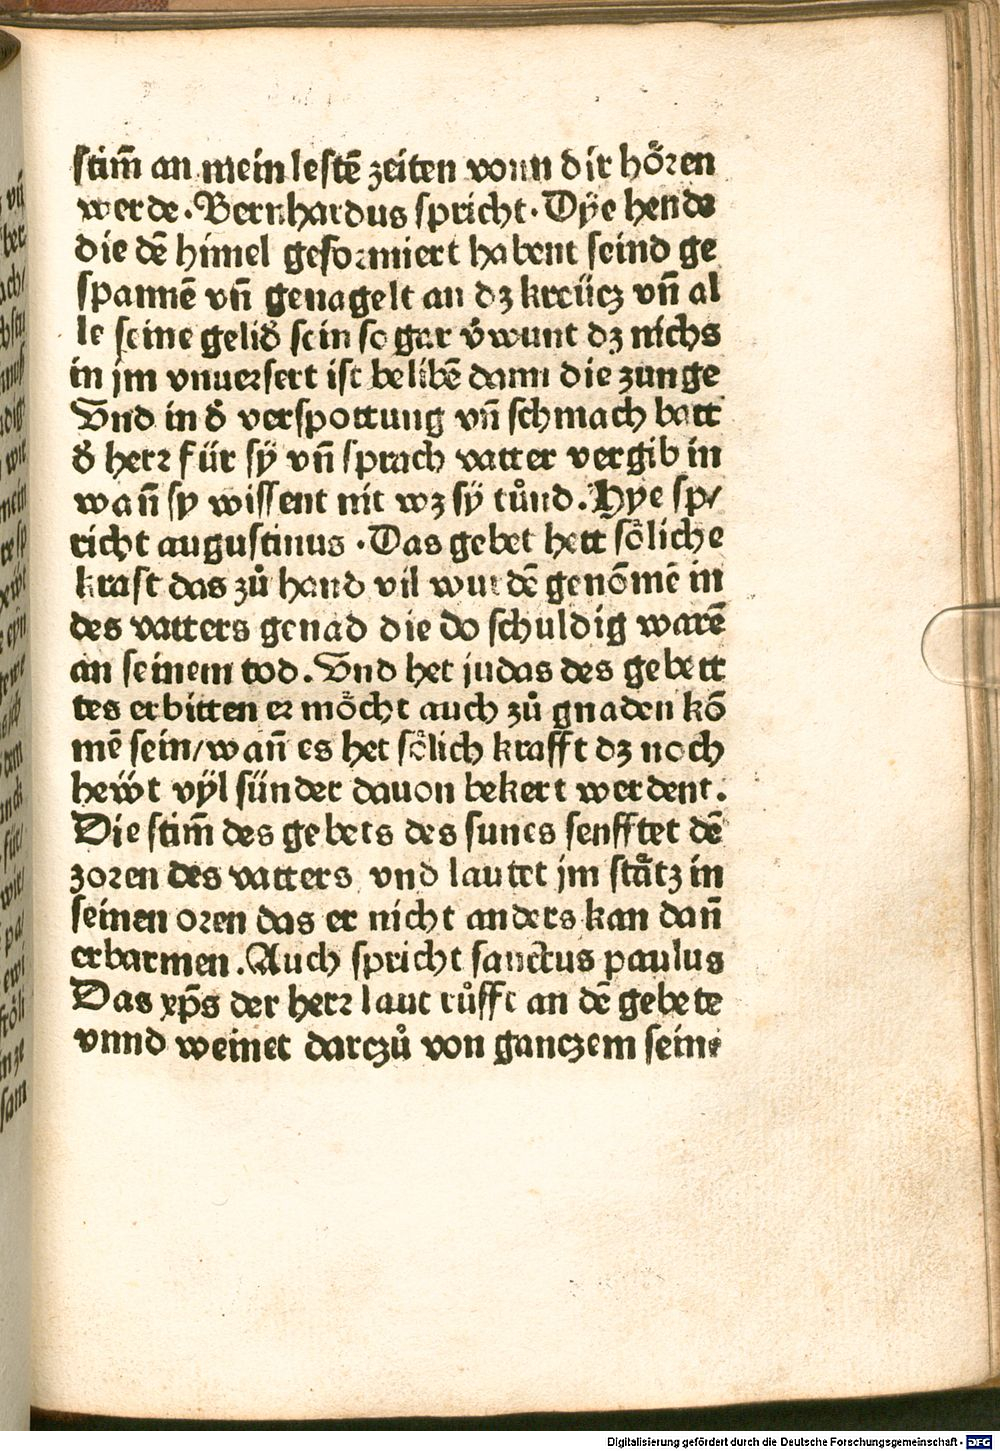 stim̃ an mein lestẽ zeiten vonn dir hören
werde. Bernhardus spricht. Dÿe hende
die dẽ himel geformiert habent seind ge
spannẽ vñ genagelt an dz kreücz vñ al
le seine gelid̾ sein so gar v̾wunt dz nichs
in jm vnuersert ist belibẽ dann die zunge
Vnd in d̾ verspottung vñ schmach batt
d̾ herr für sÿ vñ sprach vatter vergib in
wañ sy wissent nit wz sÿ tůnd. Hye sp/
richt augustinus. Das gebet hett söliche
kraft das zů hand vil wurdẽ genõmẽ in
des vatters genad die do schuldig warẽ
an seinem tod. Vnd het judas des gebett
tes erbitten er möcht auch zů gnaden kõ
mẽ sein/wañ es het sölich krafft dz noch
heẅt vÿl sünder dauon bekert werdent.
Die stim̃ des gebets des sunes senfftet dẽ
zoren des vatters vnd lautet jm stätz in
seinen oren das er nicht anders kan dañ
erbarmen. Auch spricht sanctus paulus
Das xp̃s der herr laut růfft an dẽ gebete
vnnd weinet darczů von ganczem seine
Digitalisierung gefördert durch die Deutsche Forschungsgemeinschaft - DFG